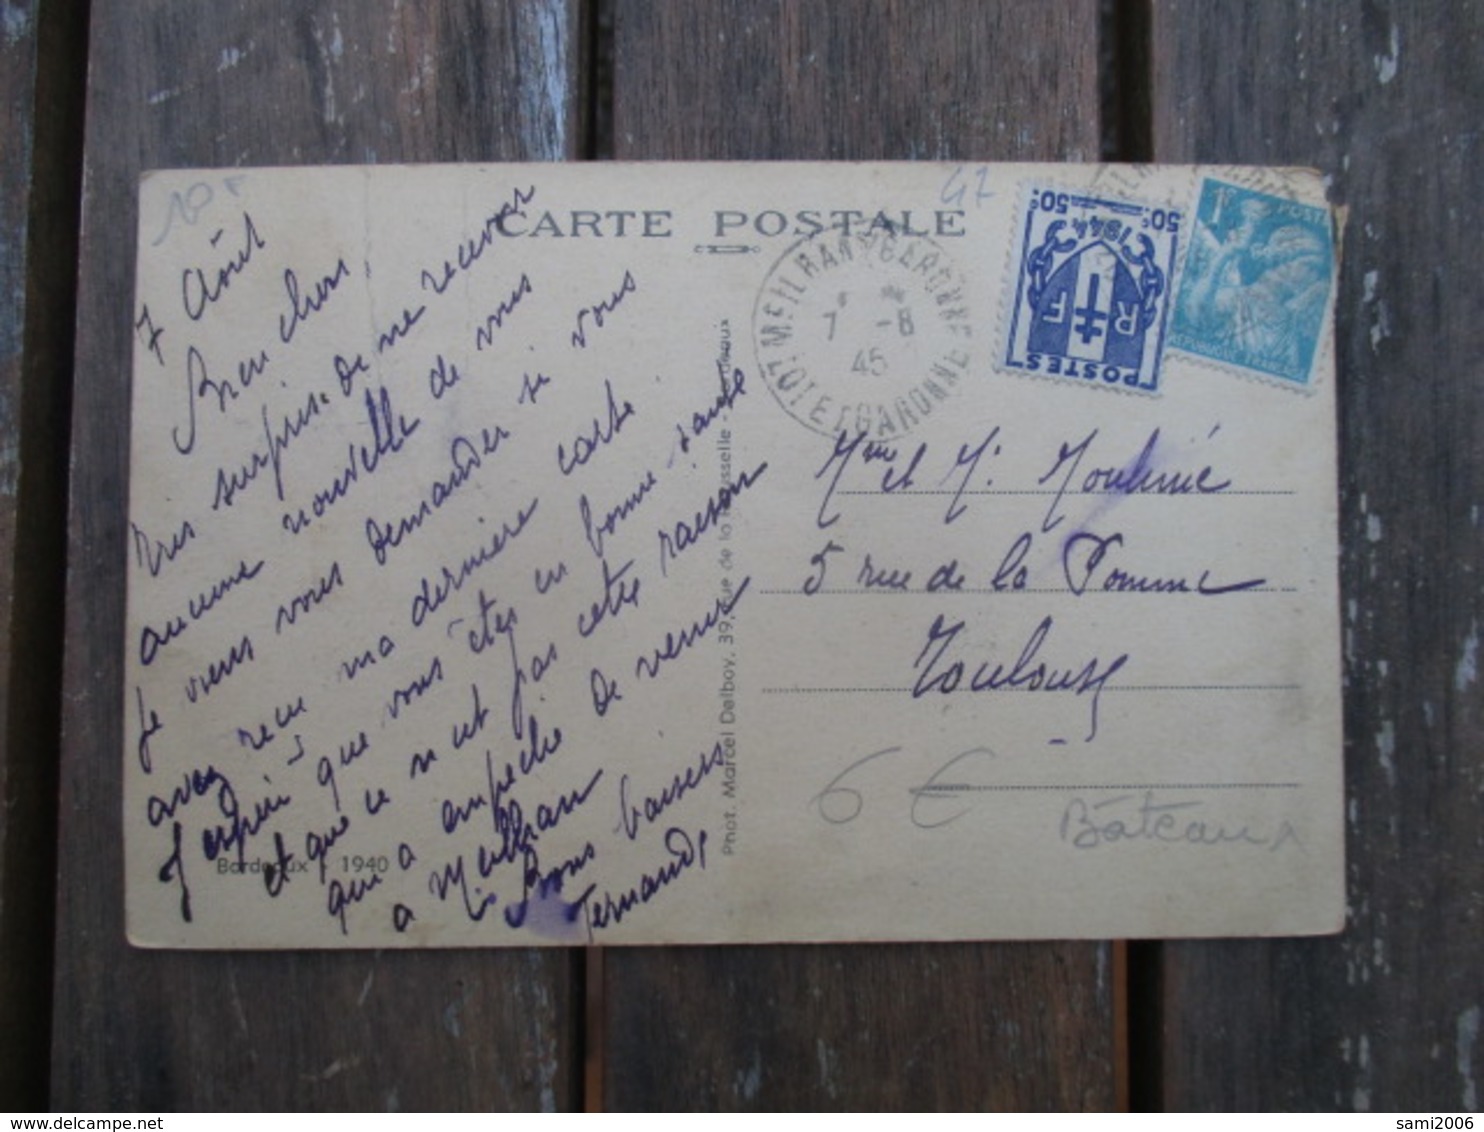 10F
47
CARTE POSTALE
7 Août
Bien chers,
Très surprise de ne recevoir
aucune nouvelle de vous
Je viens vous demander si vous
avez recu ma dernière carte.
J'espère que vous êtes en bonne sante
et que ce n'est pas cette raison
qui a empeché de venir
a Meilhan
Bons baisers
Fernand,
Bordeaux 1940
Phot. Marcel Delboy, 39, rue de la Rousselle - Bordeaux
MEILHAN S GARONNE
7 -8
45
LOT ET GARONNE
50c 50c
1944
RF
POSTES
1F POSTES
REPUBLIQUE FRANCAISE
Mme et M. Moulinié
5 rue de la Pomme
Toulouse
6 €
Bâteaux
sami2006